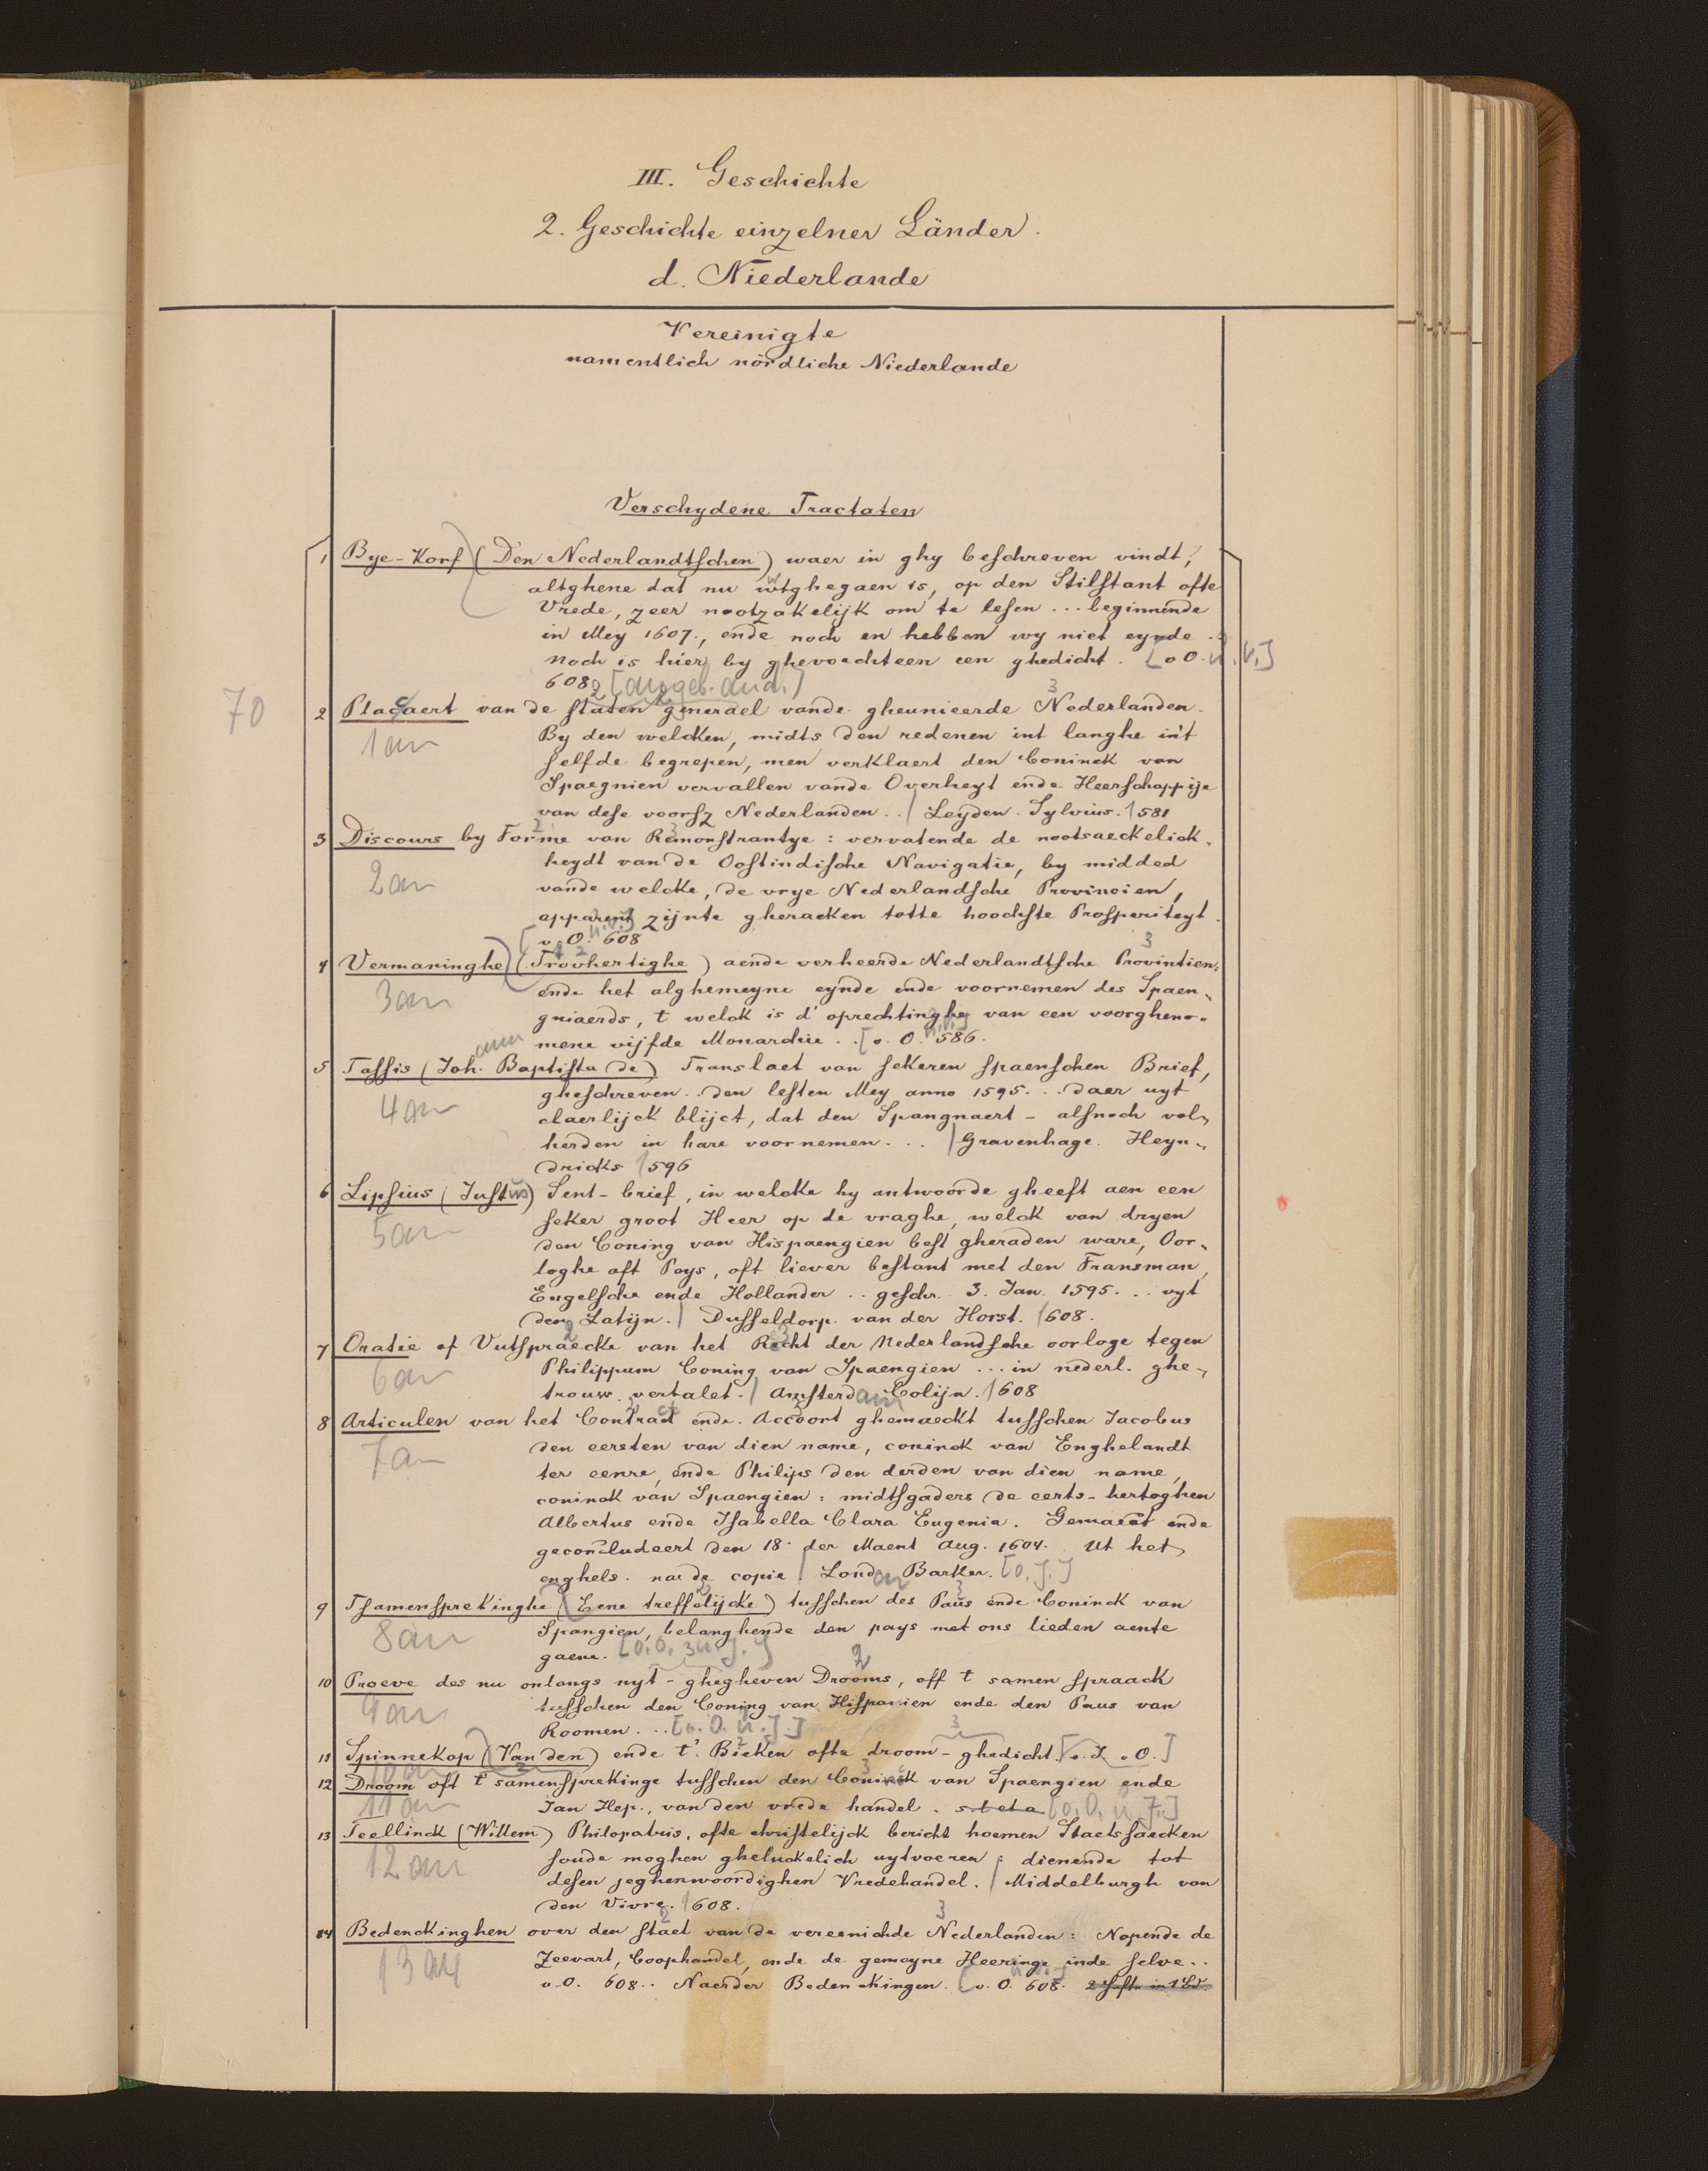 III. Geschichte
2. Geschichte einzelner Länder.
d. Niederlande
Vereinigte
namentlich nördliche Niederlande
Verschydene Tractaten
1 Bye-Korf (Den Nederlandtschen) waer in ghy beschreven vindt,
altghene dat nu wtghegaen is, op den Stilstant ofte
Vrede, zeer nootzakelijk om te lesen ... beginnende
in Mey 1607., ende noch en hebben wy niet eynde.
Noch is hier by ghevoechteen een ghedicht. [o O. u. V.]
608 2 [angeb. and.]
70
2 Placcaert van de staten generael vande gheunieerde Nederlanden.
1 an
By den welcken, midts den redenen int langhe in't
selfde begrepen, men verklaert den Coninck van
Spaegnien vervallen vande Overheyt ende Heerschappije
van dese voorsz Nederlanden .. / Leyden. Sylvius. 1581
3 Discours by Forme van Remonstrantye : vervatende de nootsaeckelick-
2 an
heydt van de Oostindische Navigatie, by middel
vande welcke, de vrye Nederlandsche Provincien,
apparent zijnte gheracken totte hoochste Prosperiteyt.
[o. O. u. V.] 608
4 Vermaninghe (Trovhertighe) aende verheerde Nederlandtsche Provintien,
3 an
ende het alghemeyne eynde ende voornemen des Spaen-
gniaerds, t welck is d' oprechtinghe van een voorgheno-
mene vijfde Monarchie .. [o. O. u. V.] 586.
5 Tassis (Joh. ann Baptista de) Translaet van sekeren spaenschen Brief,
4 an
gheschreven .. den lesten Mey anno 1595. .. daer uyt
claerlijck blijct, dat den Spangnaert - alsnoch vol-
herden in hare voornemen. .. / Gravenhage. Heyn-
dricks 1596
6 Lipsius (Justus) Sent-brief, in welcke hy antwoorde gheeft aen een
5 an
seker groot Heer op de vraghe, welck van dryen
den Coning van Hispaengien best gheraden ware, Oor-
loghe oft Pays, oft liever bestant met den Fransman,
Engelsche ende Hollander .. geschr. 3. Jan. 1595. .. uyt
den Latijn. / Dusseldorp. van der Horst. 1608.
7 Oratie of Uutspraecke van het Recht der Nederlandsche oorloge tegen
6 an
Philippum Coning van Spaengien ... in nederl. ghe-
trouw. vertalet. / Amsterdam Colijn. 1608
8 Articulen van het Contract ende. Accoort ghemaeckt tusschen Jacobus
7 an
den eersten van dien name, coninck van Enghelandt
ter eenre, ende Philips den derden van dien name,
coninck van Spaengien : midtsgaders de eerts-hertoghen
Albertus ende Isabella Clara Eugenia. Gemaect ende
geconcludeert den 18. der Maent Aug. 1604. Ut het
enghels. na de copie / London Barker. [o. J.]
9 Tsamensprekinghe (Eene treffelijcke) tusschen des Paus ende Coninck van
8 an
Spangien, belanghende den pays met ons lieden aente
gaene. [o. O. u. J.]
10 Proeve des nu onlangs uyt-ghegheven Drooms, off t samen spraack
9 an
tusschen den Coning van Hispanien ende den Paus van
Roomen. .. [o. O. u. J.]
11 Spinnekop (Van den) ende t' Bieken ofte droom-ghedicht. [o. J. o O.]
10 an
12 Droom oft t'samensprekinge tusschen den Coninck van Spaengien ende
11 an
Jan Hep., van den vrede handel. s t et a [o. O. u. J.]
13 Teellinck (Willem) Philopatris, ofte christelijck bericht hoemen Staetssaecken
12 an
soude moghen gheluckelich uytvoeren : dienende tot
desen jeghenwoordighen Vredehandel. / Middelburgh van
den Vivre. 1608.
14 Bedenckinghen over den staet van de vereenichde Nederlanden : Nopende de
13 an
Zeevart, Coophandel, ende de gemeyne Neeringe inde selve..
o. O. 608.. Naerder Bedenckingen. [o. O. u. V.] 608. 2 Hefte in 1 Bd.